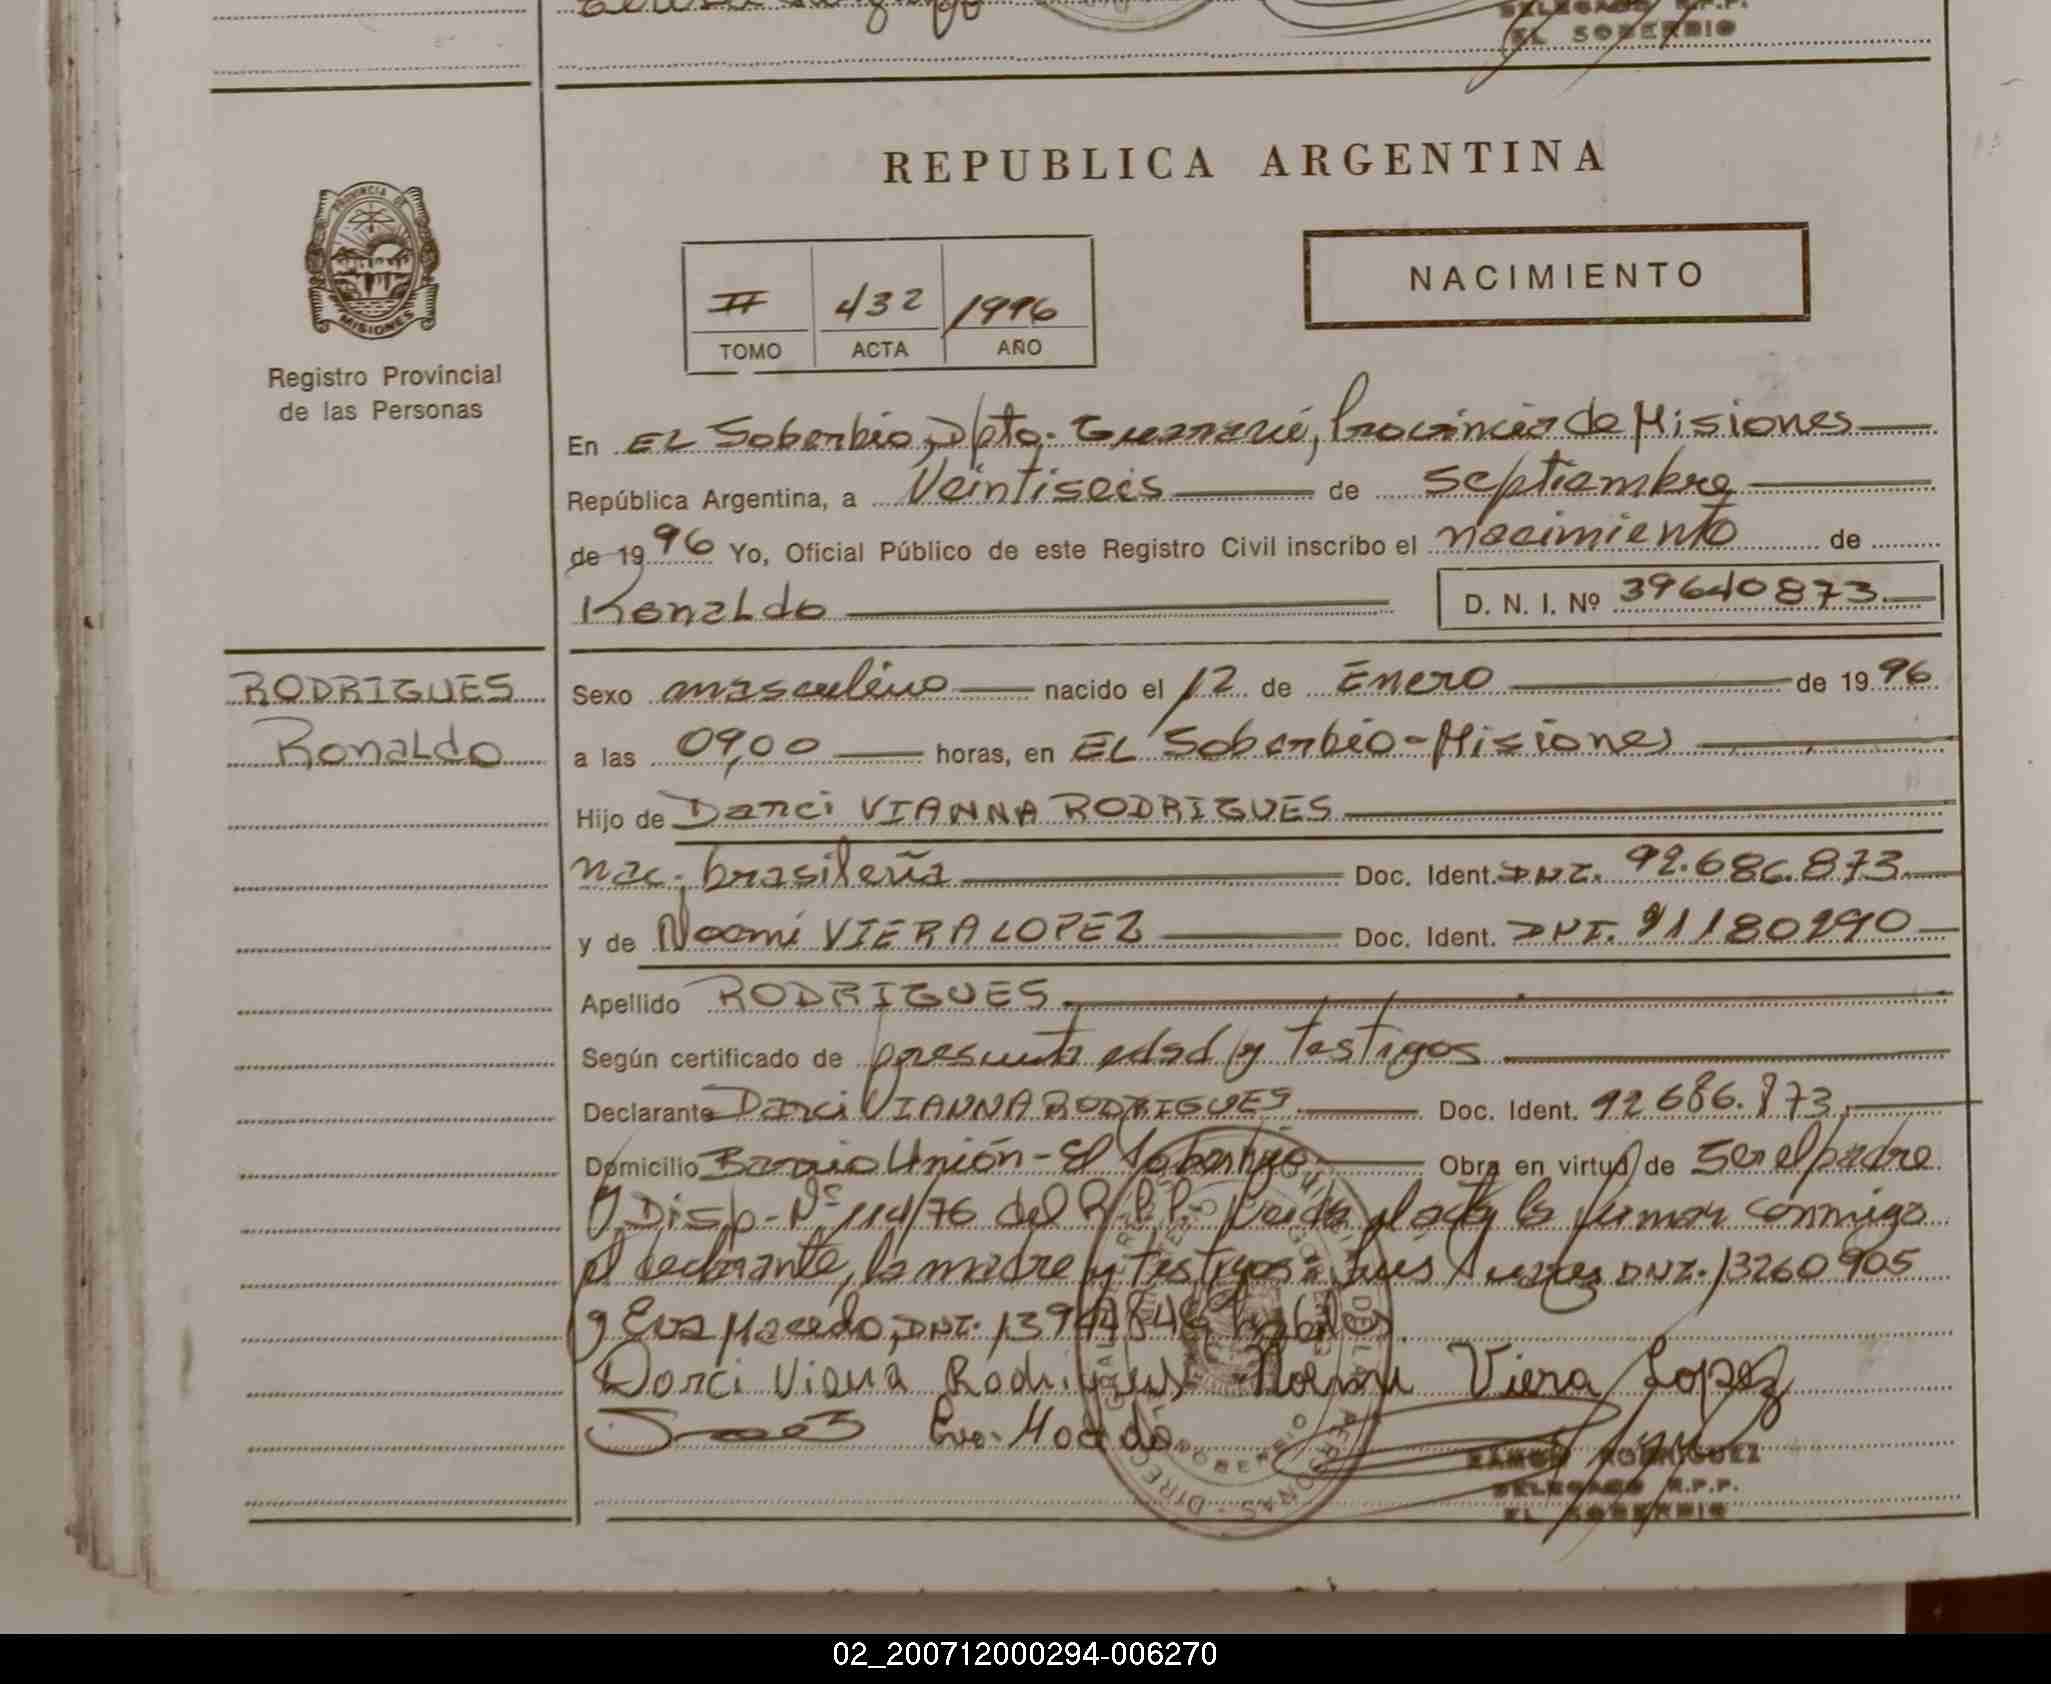 DELEGADO R.P.P.
EL SOBERBIO
REPUBLICA ARGENTINA
PROVINCIA DE
MISIONES
Registro Provincial
de las Personas
II 432 1996
TOMO ACTA AÑO
NACIMIENTO
En EL Soberbio, Dpto. Guaraní, Provincia de Misiones
República Argentina, a Veintiseis de septiembre
de 1996 Yo, Oficial Público de este Registro Civil inscribo el nacimiento de
Ronaldo D. N. I. Nº 39640873
RODRIGUES
Ronaldo
Sexo masculino nacido el 12 de Enero de 1996
a las 09,00 horas, en EL Soberbio-Misiones
Hijo de Darci VIANNA RODRIGUES
nac. brasileña Doc. Ident. DNI. 92.686.873
y de Noemi VIERA LOPEZ Doc. Ident. DNI. 91180290
Apellido RODRIGUES
Según certificado de presunta edad y testigos
Declarante Darci VIANNA RODRIGUES Doc. Ident. 92686.873
Domicilio Barrio Unión-El Soberbio Obra en virtud de ser el padre
y Disp-Nº 114/76 del R.P.P. Leida el acta la firman conmigo
el declarante, la madre y testigos: Luis DNI. 13260905
y Eva Macedo, DNI. habiles.
Darci Viana Rodrigues Noemi Viera Lopez
Eva Macedo
RAMON RODRIGUEZ
DELEGADO R.P.P.
EL SOBERBIO
02_200712000294-006270